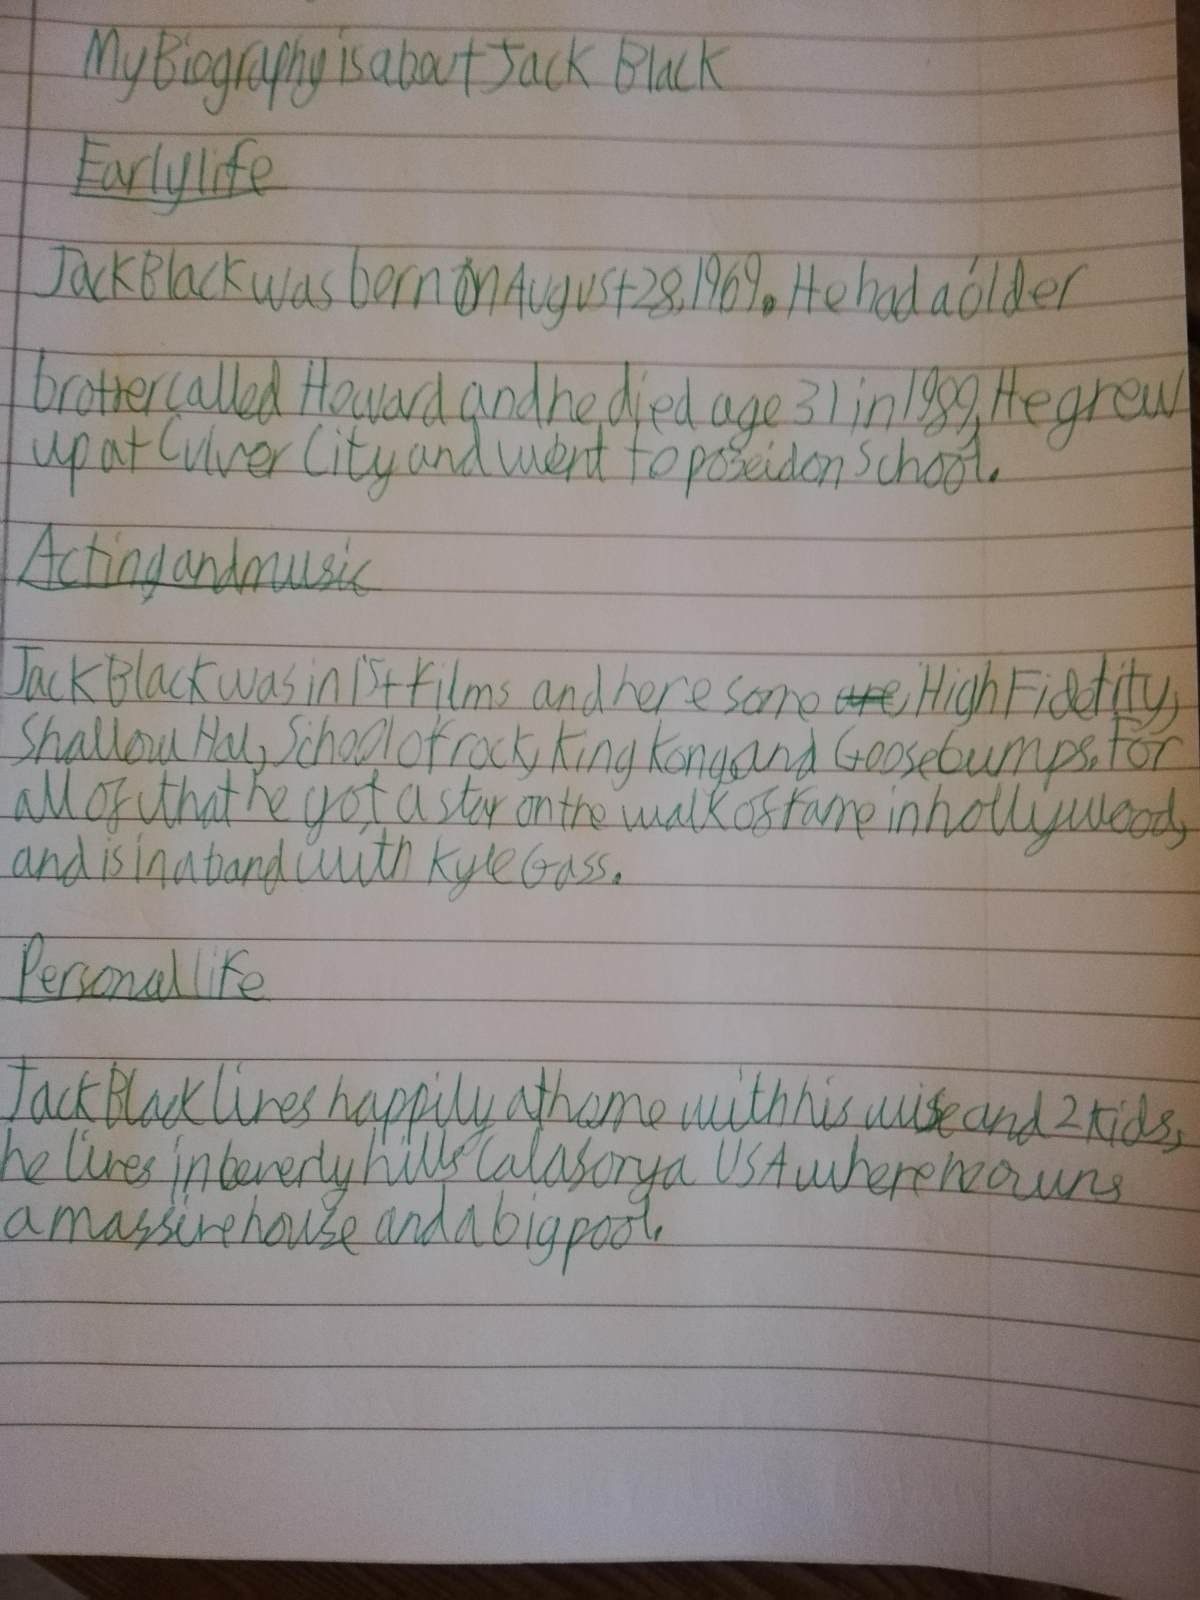 My Biography is about Jack Black
Early life
Jack Black was born on August 28, 1969. He had a older
brother called Howard and he died age 31 in 1989, He grew
up at Culver City and went to poseidon School.
Acting and music
Jack Black was in 15+ films and here some are, High Fidetity,
Shallow Hal, School of rock, King Kong and Goosebumps. For
all of that he got a star on the walk of fame in hollywood,
and is in a band with Kyle Gass.
Personal life
Jack Black lives happily at home with his wife and 2 kids,
he lives in beverly hills Calafornya USA where he owns
a massive house and a big pool.